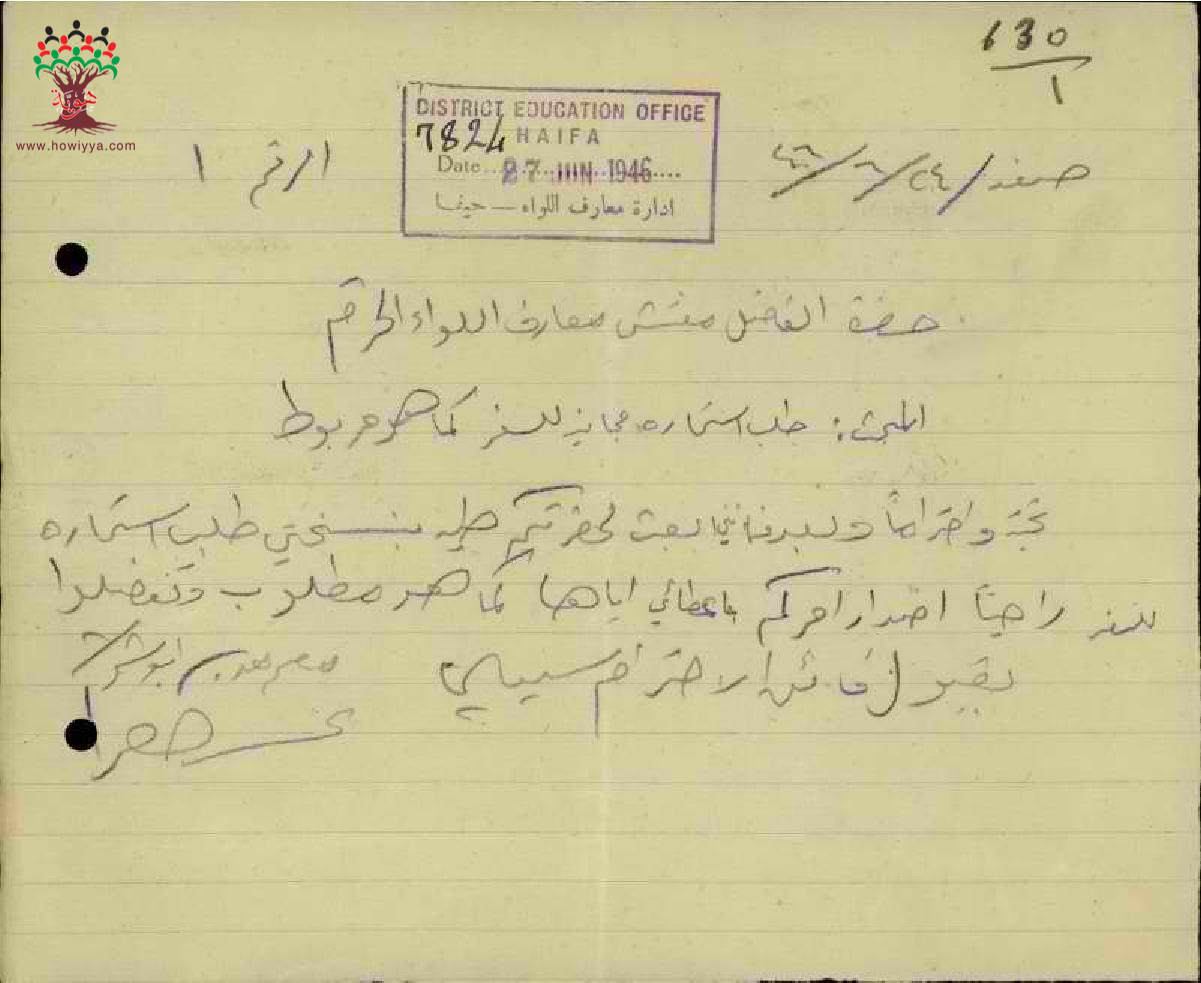 630
١
www.howiyya.com
DISTRICT EDUCATION OFFICE
7824 HAIFA
Date 27 JUN 1946
ادارة معارف اللواء — حيفا
صفد ٢٤/٦/٤٦
الرقم ١
حضرة الفاضل مفتش معارف اللواء المحترم
المبحث: طلب استماره مجانية للسفر كما هو مربوط
تحية واحتراماً وبعد فانني ابعث لحضرتكم طيه بنسختي طلب استماره
للسفر راجياً اصدار امركم باعطائي اياها كما هو مطلوب وتفضلوا
بقبول فائق الاحترام سيدي
معلم مدرسة